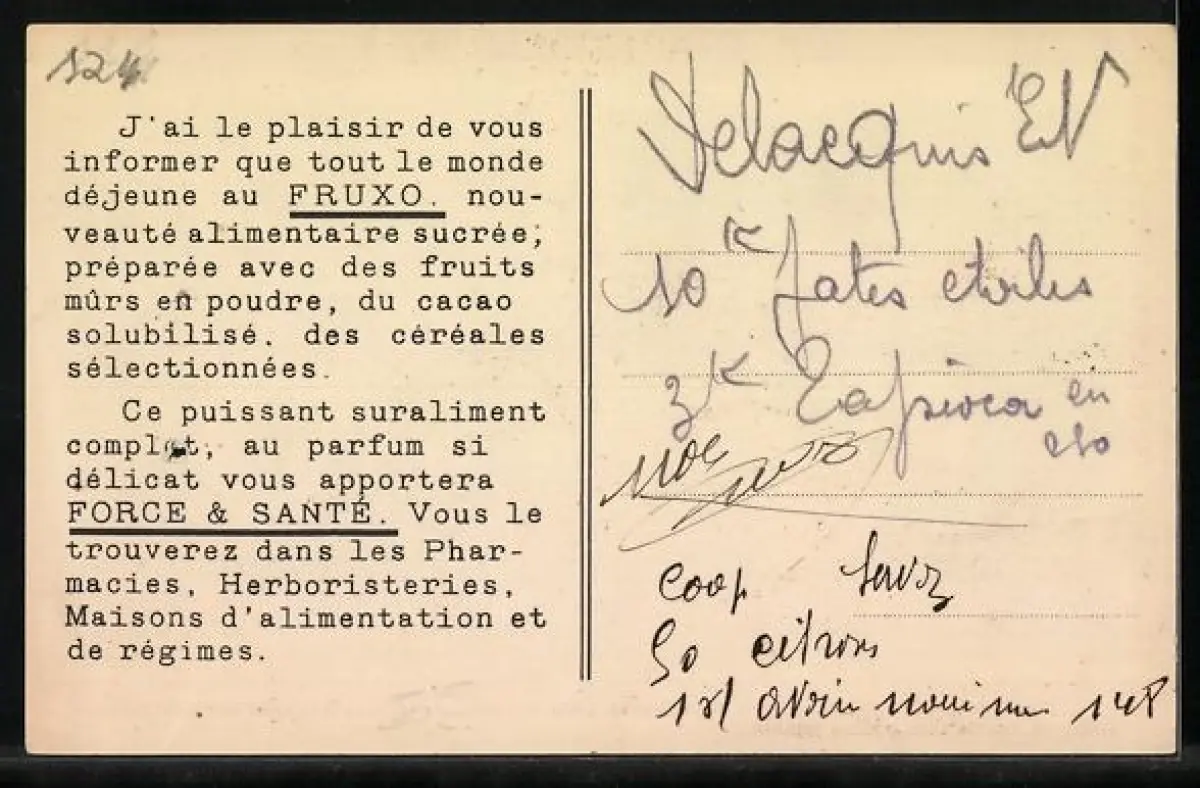 124
J'ai le plaisir de vous
informer que tout le monde
déjeune au FRUXO. nou-
veauté alimentaire sucrée,
préparée avec des fruits
mûrs en poudre, du cacao
solubilisé. des céréales
sélectionnées.
Ce puissant suraliment
complet, au parfum si
délicat vous apportera
FORCE & SANTÉ. Vous le
trouverez dans les Phar-
macies, Herboristeries,
Maisons d'alimentation et
de régimes.
Delacquis
10 K pates etoiles
3 K Tapioca en
Coop
50 citrons
148